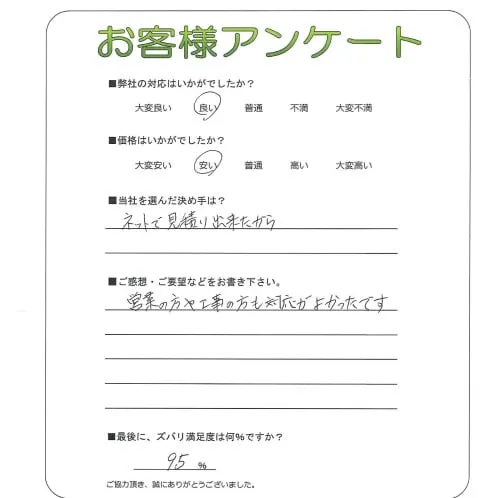 お客様アンケート
■弊社の対応はいかがでしたか？
大変良い 良い 普通 不満 大変不満
■価格はいかがでしたか？
大変安い 安い 普通 高い 大変高い
■当社を選んだ決め手は？
ネットで見積り出来たから
■ご感想・ご要望などをお書き下さい。
営業の方や工事の方も対応がよかったです
■最後に、ズバリ満足度は何％ですか？
95 ％
ご協力頂き、誠にありがとうございました。